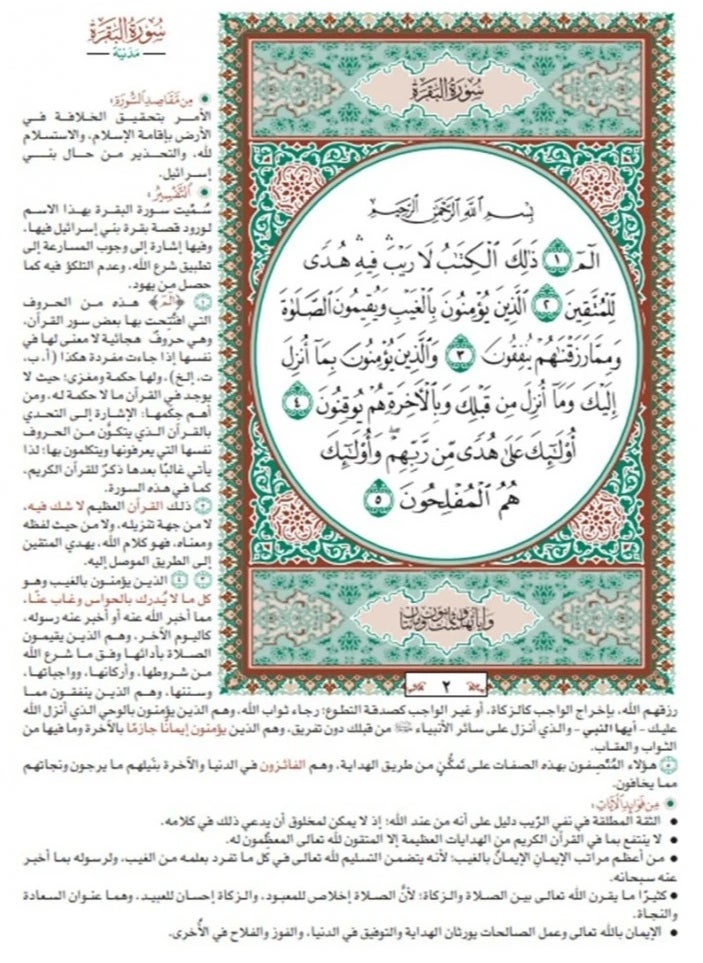 سُورَةُ البَقَرَةِ
مَدَنِيَّة
مِن مَّقَاصِدِ السُّورَةِ:
الأمـر بتحقيـق الخلافـة فـي
الأرض بإقامة الإسلام، والاستسلام
لله، والتحذيـر مـن حـال بنـي
إسرائيل.
التَّفْسِيرُ:
سُمِّيت سورة البقرة بهذا الاسم
لورود قصة بقرة بني إسرائيل فيها،
وفيها إشارة إلى وجوب المسارعة إلى
تطبيق شرع الله، وعدم التلكؤ فيه كما
حصل من يهود.
١ ﴿الٓمٓ﴾ هذه من الحروف
التي افتُتحت بها بعض سور القرآن،
وهي حروفٌ هجائية لا معنى لها في
نفسها إذا جاءت مفردة هكذا (أ، ب،
ت، إلخ)، ولها حكمة ومغزى؛ حيث لا
يوجد في القرآن ما لا حكمة له، ومن
أهم حِكَمها: الإشارة إلى التحدي
بالقرآن الذي يتكوَّن من الحروف
نفسها التي يعرفونها ويتكلمون بها؛ لذا
يأتي غالبًا بعدها ذكرٌ للقرآن الكريم،
كما في هذه السورة.
٢ ذلك القرآن العظيم لا شك فيه،
لا من جهة تنزيله، ولا من حيث لفظه
ومعناه، فهو كلام الله، يهدي المتقين
إلى الطريق الموصل إليه.
٣ ٤ الذين يؤمنون بالغيب وهو
كل ما لا يُدرك بالحواس وغاب عنّا،
مما أخبر الله عنه أو أخبر عنه رسوله،
كاليوم الآخر، وهم الذين يقيمون
الصلاة بأدائها وفق ما شرع الله
من شروطها، وأركانها، وواجباتها،
وسننها، وهم الذين ينفقون مما
سُورَةُ البَقَرَةِ
بِسۡمِ ٱللَّهِ ٱلرَّحۡمَٰنِ ٱلرَّحِيمِ
الٓمٓ ١ ذَٰلِكَ ٱلۡكِتَٰبُ لَا رَيۡبَۛ فِيهِۛ هُدٗى
لِّلۡمُتَّقِينَ ٢ ٱلَّذِينَ يُؤۡمِنُونَ بِٱلۡغَيۡبِ وَيُقِيمُونَ ٱلصَّلَوٰةَ
وَمِمَّا رَزَقۡنَٰهُمۡ يُنفِقُونَ ٣ وَٱلَّذِينَ يُؤۡمِنُونَ بِمَآ أُنزِلَ
إِلَيۡكَ وَمَآ أُنزِلَ مِن قَبۡلِكَ وَبِٱلۡأٓخِرَةِ هُمۡ يُوقِنُونَ ٤
أُوْلَٰٓئِكَ عَلَىٰ هُدٗى مِّن رَّبِّهِمۡۖ وَأُوْلَٰٓئِكَ
هُمُ ٱلۡمُفۡلِحُونَ ٥
٢
رزقهم الله، بإخراج الواجب كالزكاة، أو غير الواجب كصدقة التطوع؛ رجاء ثواب الله، وهم الذين يؤمنون بالوحي الذي أنزل الله
عليك - أيها النبي - والذي أنزل على سائر الأنبياء ﷺ من قبلك دون تفريق، وهم الذين يؤمنون إيمانًا جازمًا بالآخرة وما فيها من
الثواب والعقاب.
٥ هؤلاء المُتَّصِفون بهذه الصفات على تَمكُّنٍ من طريق الهداية، وهم الفائزون في الدنيا والآخرة بنَيلهم ما يرجون ونجاتهم
مما يخافون.
مِن فَوَائِدِ الآيَاتِ:
• الثقة المطلقة في نفي الرَّيب دليل على أنه من عند الله؛ إذ لا يمكن لمخلوق أن يدعي ذلك في كلامه.
• لا ينتفع بما في القرآن الكريم من الهدايات العظيمة إلا المتقون لله تعالى المعظِّمون له.
• من أعظم مراتب الإيمانِ الإيمانُ بالغيب؛ لأنه يتضمن التسليم لله تعالى في كل ما تفرد بعلمه من الغيب، ولرسوله بما أخبر
عنه سبحانه.
• كثيرًا ما يقرن الله تعالى بين الصلاة والزكاة؛ لأنَّ الصلاة إخلاص للمعبود، والزكاة إحسان للعبيد، وهما عنوان السعادة
والنجاة.
• الإيمان بالله تعالى وعمل الصالحات يورثان الهداية والتوفيق في الدنيا، والفوز والفلاح في الأُخرى.